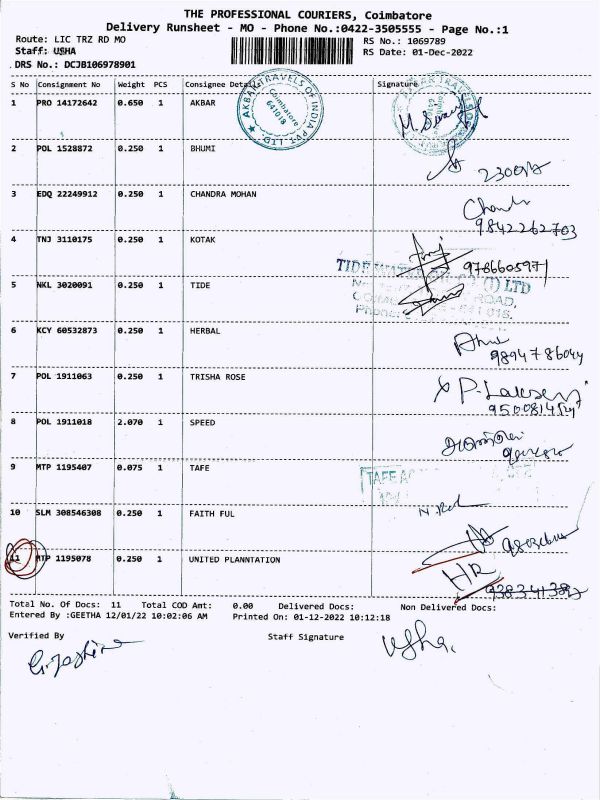 THE PROFESSIONAL COURIERS, Coimbatore
Delivery Runsheet - MO - Phone No.:0422-3505555 - Page No.:1
Route: LIC TRZ RD MO
RS No.: 1069789
Staff: USHA
RS Date: 01-Dec-2022
DRS No.: DCJB106978901
S No Consignment No Weight PCS Consignee Details Signature
AKBAR TRAVELS OF INDIA PVT. LTD.
Coimbatore
641018
1 PRO 14172642 0.650 1 AKBAR
2 POL 1528872 0.250 1 BHUMI
3 EDQ 22249912 0.250 1 CHANDRA MOHAN
9842262703
4 TNJ 3110175 0.250 1 KOTAK
9786605971
5 NKL 3020091 0.250 1 TIDE
TIDE (I) LTD
ROAD,
Phone:
6 KCY 60532873 0.250 1 HERBAL
7 POL 1911063 0.250 1 TRISHA ROSE
8 POL 1911018 2.070 1 SPEED
9 MTP 1195407 0.075 1 TAFE
TAFE
10 SLM 308546308 0.250 1 FAITH FUL
11 MTP 1195078 0.250 1 UNITED PLANNTATION
HR
Total No. Of Docs: 11 Total COD Amt: 0.00 Delivered Docs: Non Delivered Docs:
Entered By :GEETHA 12/01/22 10:02:06 AM Printed On: 01-12-2022 10:12:18
Verified By Staff Signature
Usha.